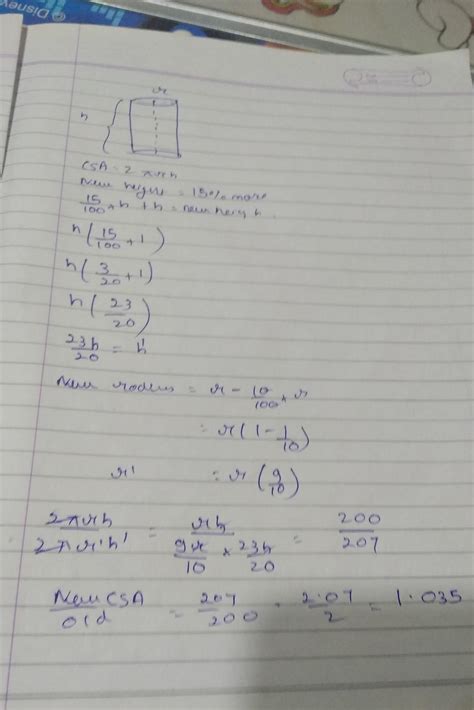 Disney
r
h
CSA = 2πrh
New height = 15% more
15/100 × h + h = new heigh
h(15/100 + 1)
h(3/20 + 1)
h(23/20)
23h/20 = h'
New radius = r - 10/100 × r
= r(1 - 1/10)
r' = r(9/10)
2πrh/2πr'h' = rh/(9r/10 × 23h/20) = 200/207
New CSA/old = 207/200 = 2.07/2 = 1.035